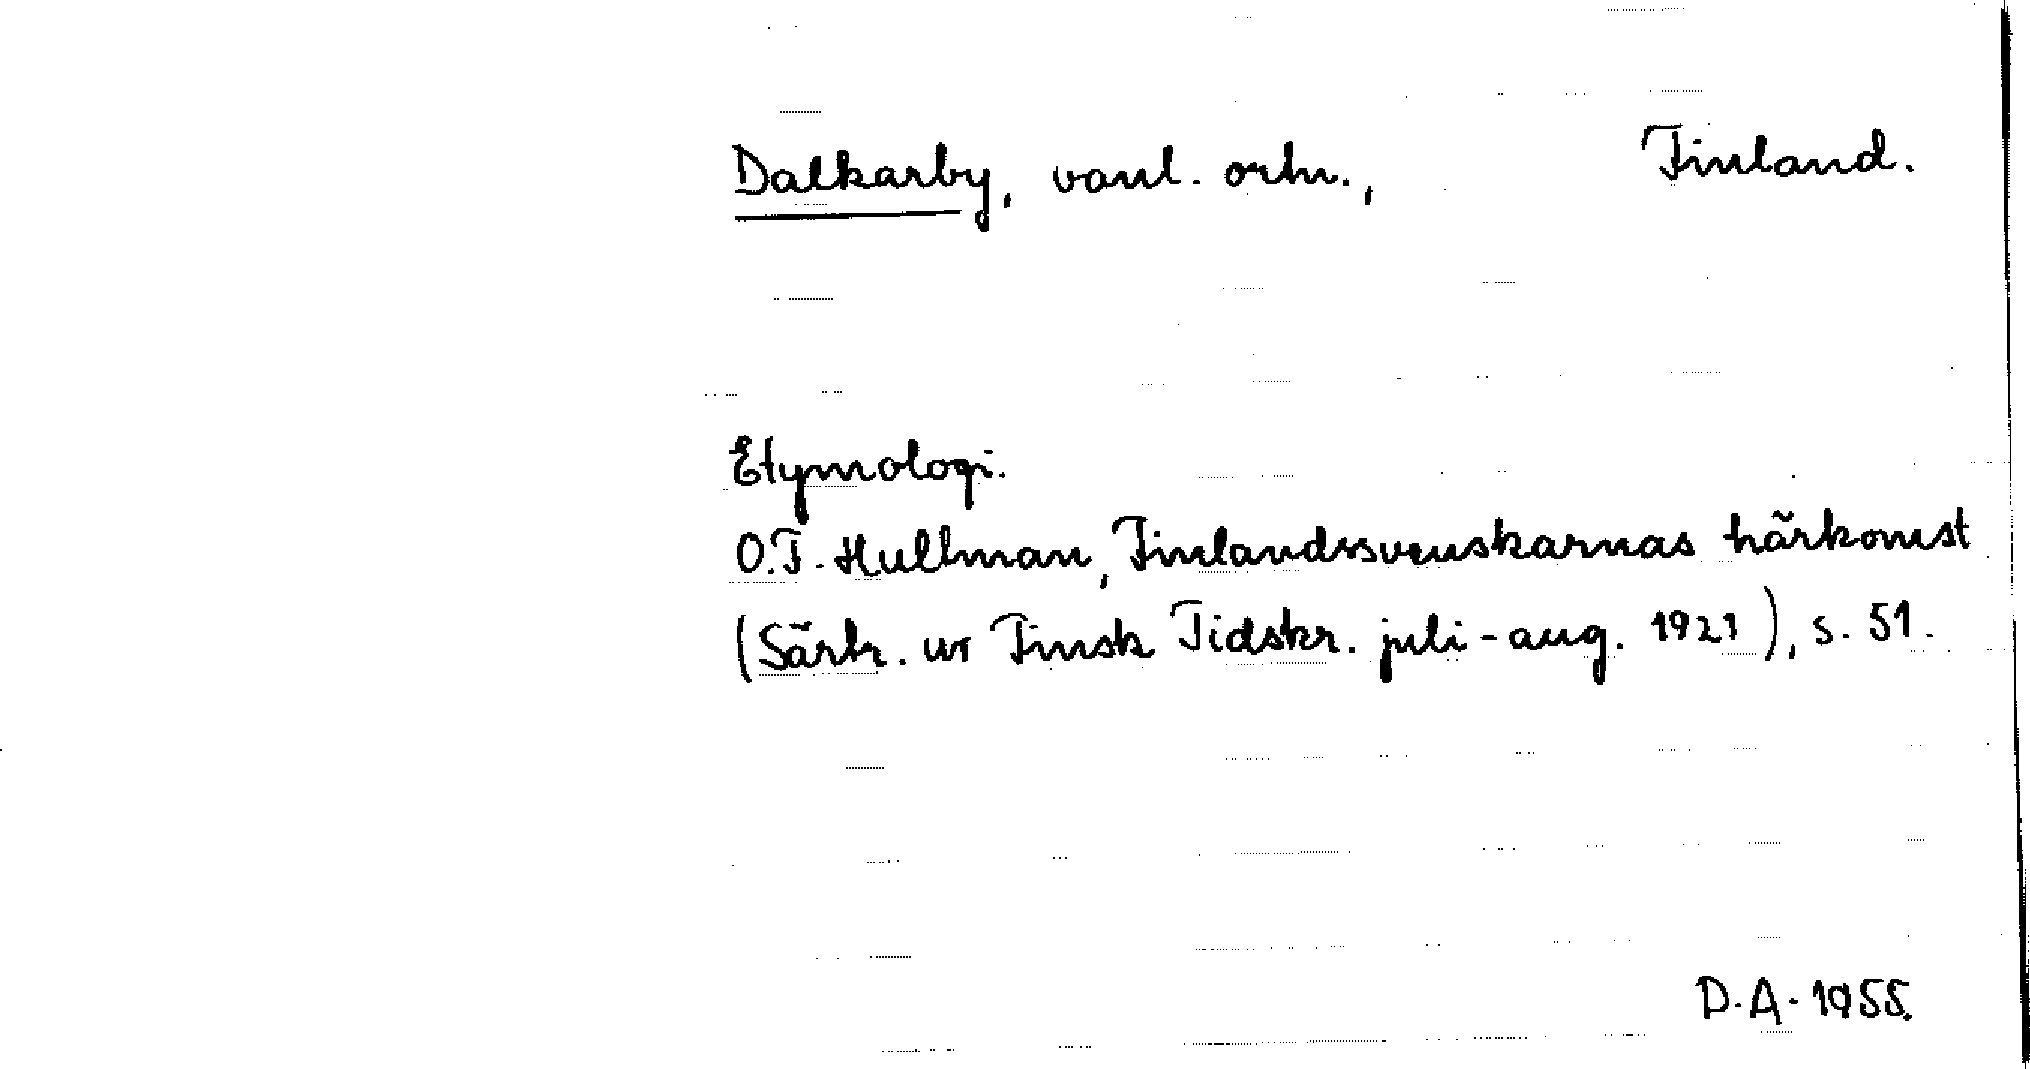 Dalkarby, vanl. ortn., Finland.
Etymologi.
O.F. Hultman, Finlandssvenskarnas härkomst
(Särtr. ur Finsk Tidskr. juli-aug. 1921), s. 51.
D.A. 1955.